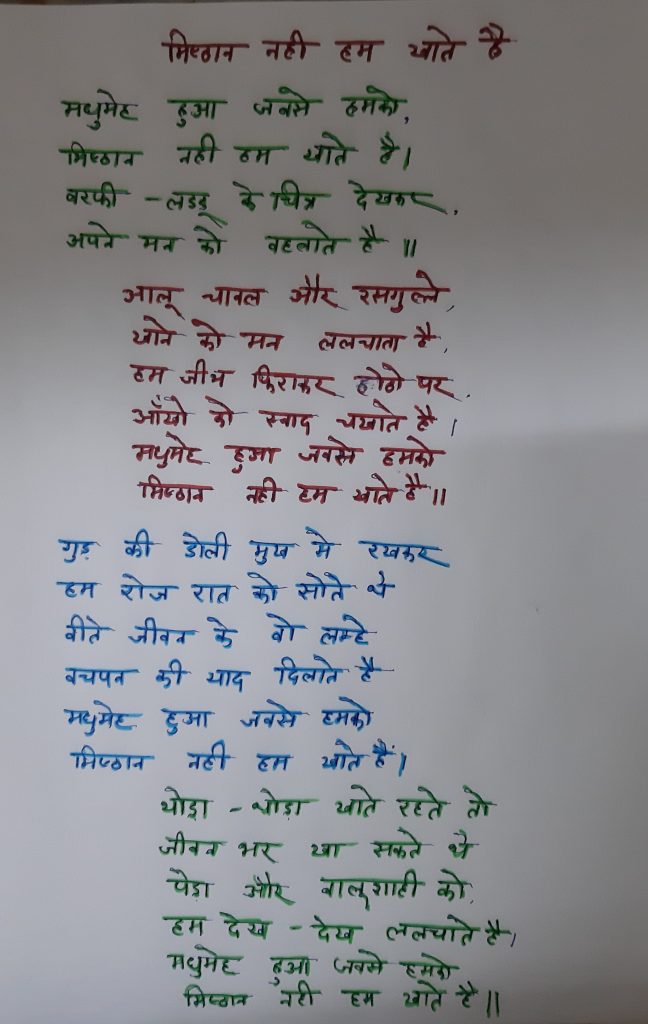 मिष्ठान नही हम खाते है
मधुमेह हुआ जबसे हमको,
मिष्ठान नही हम खाते है।
बरफी - लडडू के चित्र देखकर,
अपने मन को बहलाते है ॥
आलू चावल और रसगुल्ले,
खाने को मन ललचाता है,
हम जीभ फिराकर होठो पर,
आँखो को स्वाद चखाते है।
मधुमेह हुआ जबसे हमको
मिष्ठान नही हम खाते है॥
गुड़ की डोली मुख मे रखकर
हम रोज रात को सोते थे
बीते जीवन के वो लम्हे
बचपन की याद दिलाते है
मधुमेह हुआ जबसे हमको
मिष्ठान नही हम खाते हैं।
थोड़ा - थोड़ा खाते रहते तो
जीवन भर खा सकते थे
पेड़ा और बालूशाही को,
हम देख - देख ललचाते है,
मधुमेह हुआ जबसे हमको
मिष्ठान नही हम खाते है॥